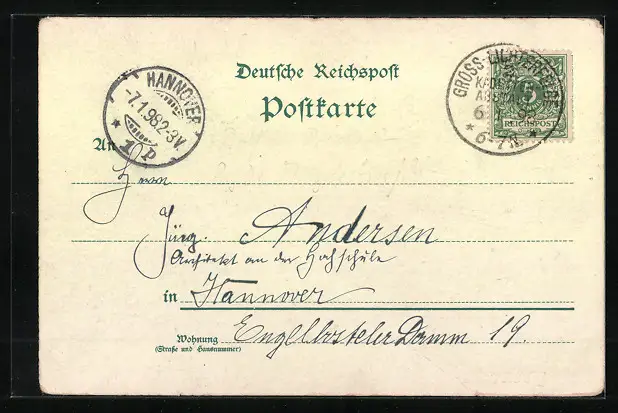 Deutsche Reichspost
Postkarte
HANNOVER
-7.1.98.2-3N.
* 1 p *
GROSS-LICHTERFELDE
6 1 98
* 6-7N *
5
REICHSPOST
An
Herrn
Jürg. Andersen
Architekt an der Hochschule
in Hannover
Wohnung Engelbosteler Damm 19.
(Straße und Hausnummer)